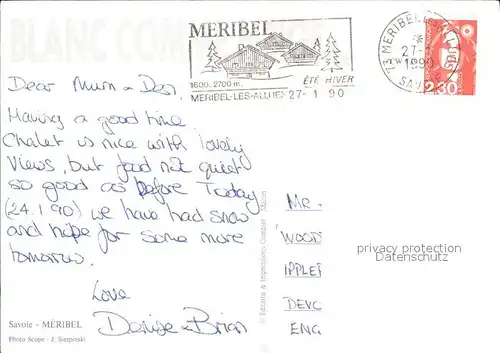 BLANC COM
MERIBEL
1600-2700 m. ÉTÉ HIVER
MERIBEL-LES-ALLUES 27-1 90
73 MERIBEL-LES-ALLUES
27-1
1990
SAVOIE
2,30
Dear Mum & Dad,
Having a good time
Chalet is nice with lovely
Views, but food not quiet
so good as before Today
(24.1.90) we have had snow
and hope for some more
tomorrow.
Love
Denise & Brian
Savoie - MÉRIBEL
Photo Scope - J. Sierpinski
© Editions & Impressions Combier Mâcon
MR.
WOOD
IPPLE
DEVO
ENG
privacy protection
Datenschutz